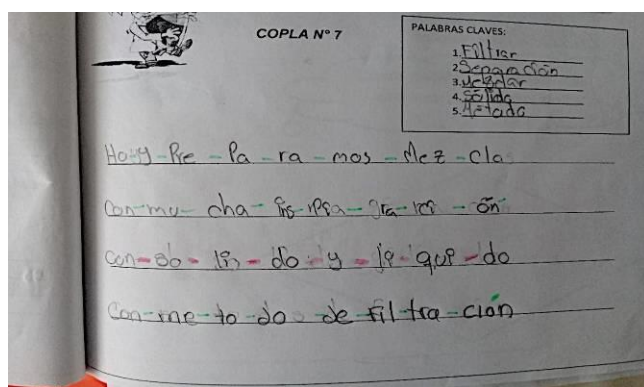 COPLA N° 7
PALABRAS CLAVES:
1. Filtrar
2. Separación
3. Mezclar
4. Sólido
5. Método
Hoy - Pre - Pa - ra - mos - Mez - cla
Con - mu - cha - - ón
Con - só - li - do - y - - qui - do
Con - me - to - do - de Fil - tra - ción